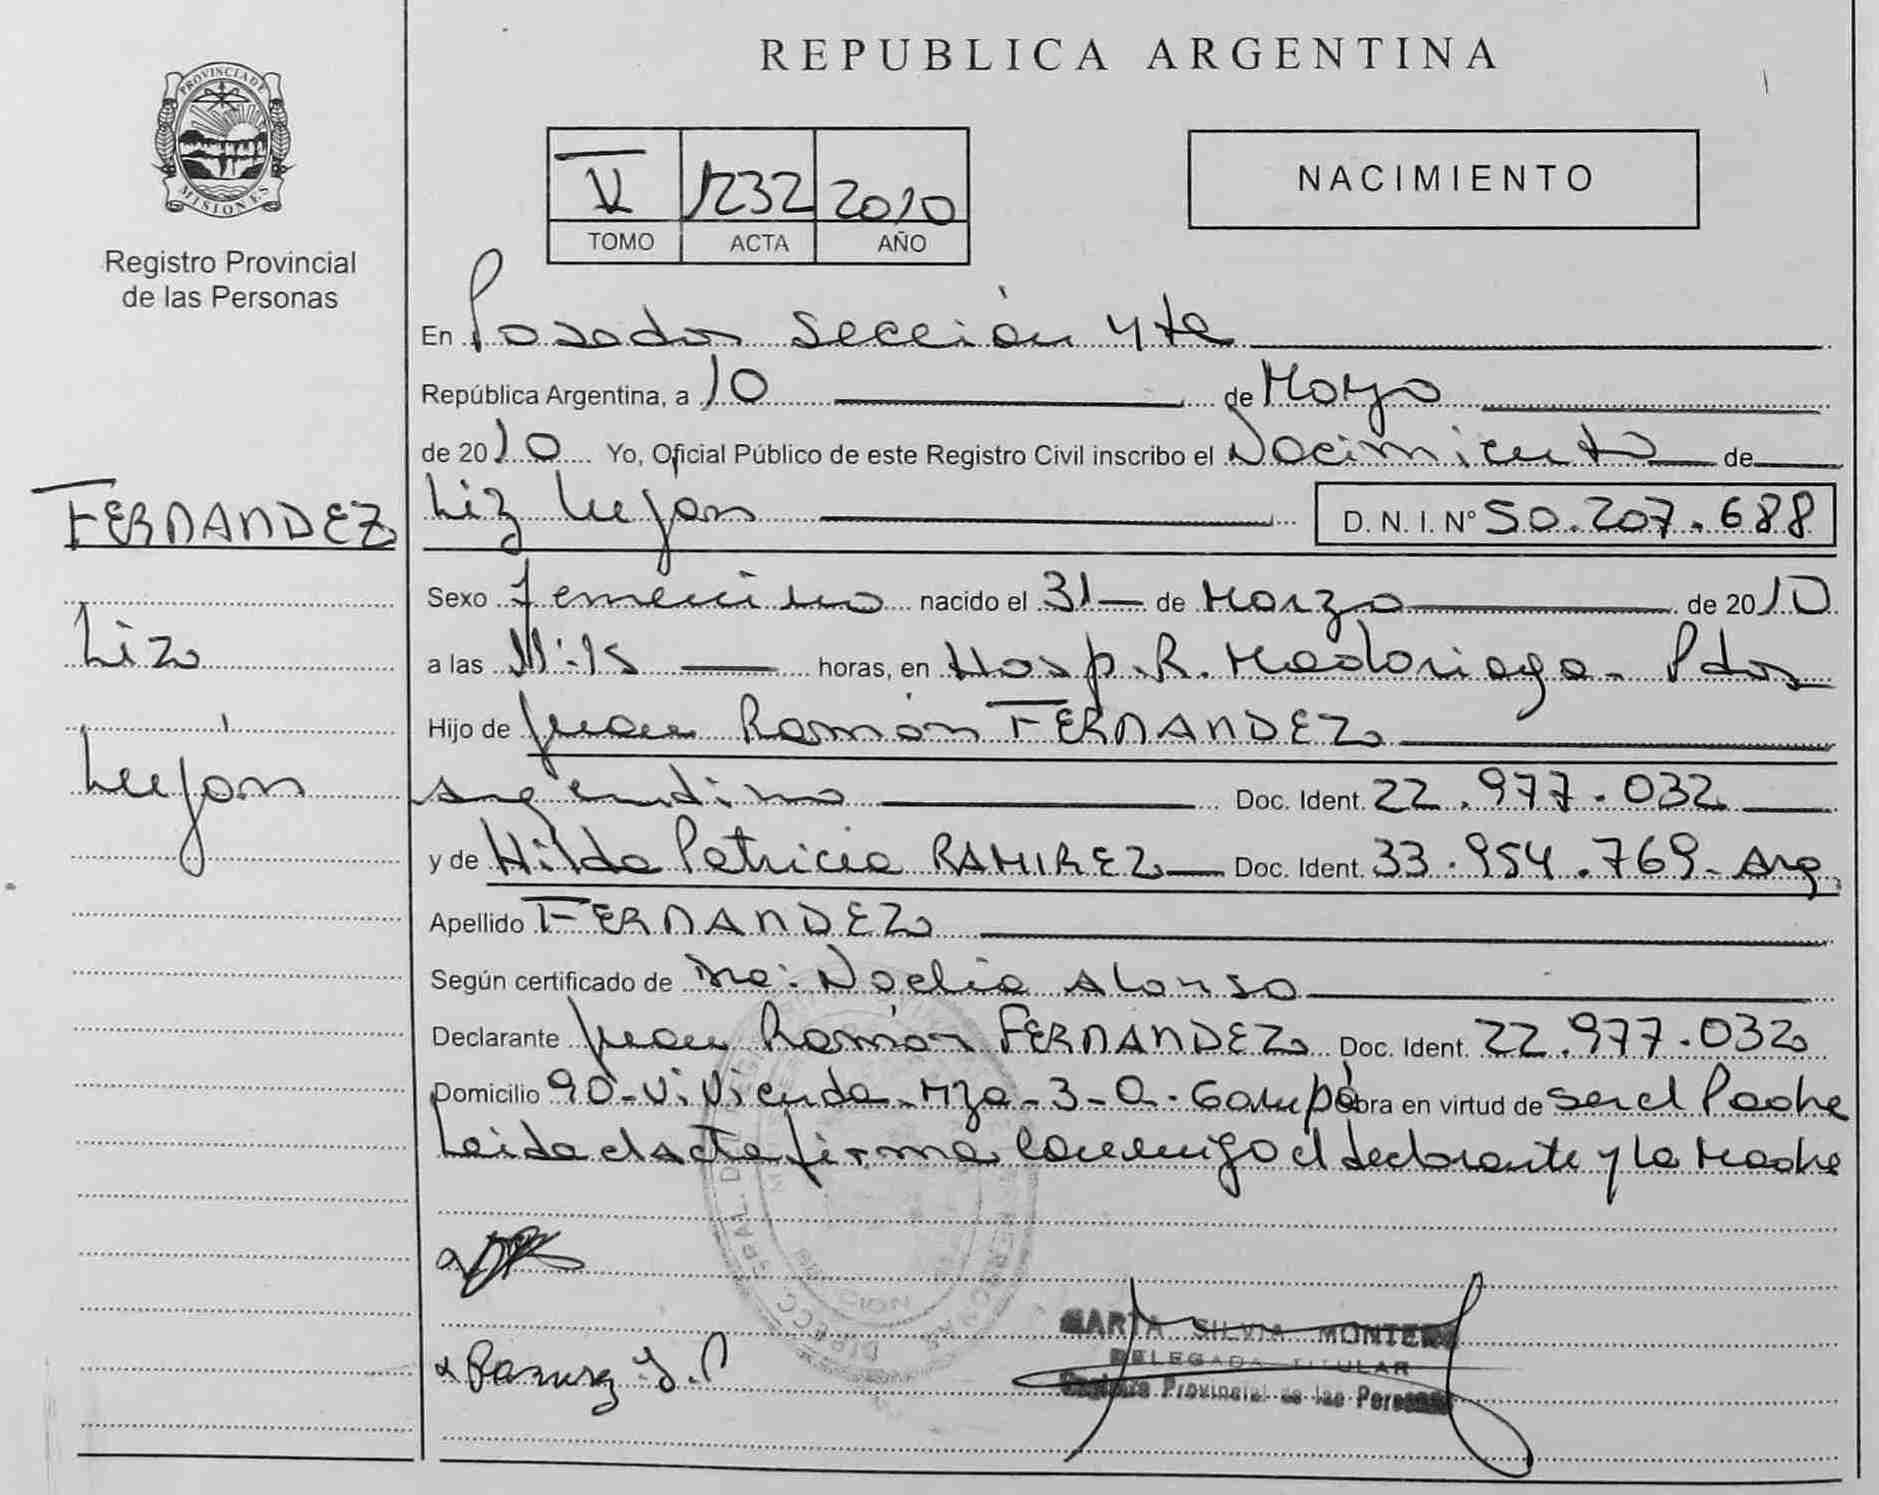 REPUBLICA ARGENTINA
PROVINCIA DE MISIONES
Registro Provincial
de las Personas
V 1232 2010
TOMO ACTA AÑO
NACIMIENTO
En Posadas Sección 4ta
República Argentina, a 10 de Mayo
de 2010 Yo, Oficial Público de este Registro Civil inscribo el Nacimiento de
Liz Luján D. N. I. N° 50.207.688
FERNANDEZ
Liz
Luján
Sexo Femenino nacido el 31 de Marzo de 2010
a las 11:15 horas, en Hosp. R. Madariaga - Pdas
Hijo de Juan Ramón FERNANDEZ
argentino Doc. Ident. 22.977.032
y de Hilda Patricia RAMIREZ Doc. Ident. 33.954.769 - Arg.
Apellido FERNANDEZ
Según certificado de Noelia Alonso
Declarante Juan Ramón FERNANDEZ Doc. Ident. 22.977.032
Domicilio 90 - Vivienda - Mza - 3 - Garupá obra en virtud de ser el Padre
Leida el acta firma conmigo el declarante y la Madre
Ramirez
MARTA SILVIA MONTERO
DELEGADA TITULAR
Registro Provincial de las Personas